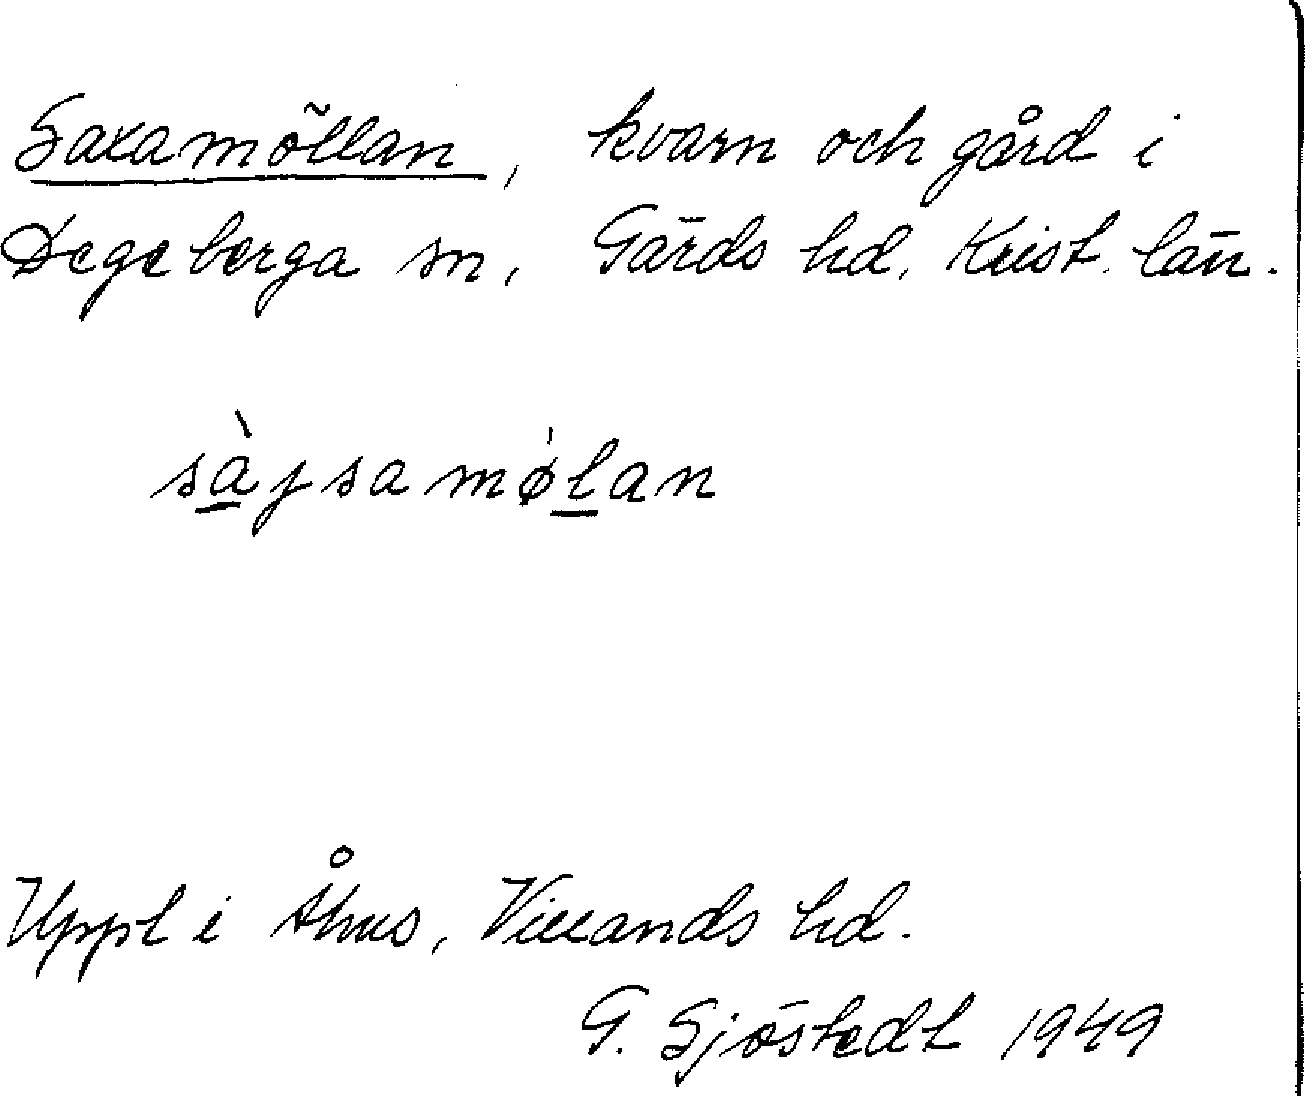 Saxamöllan, kvarn och gård i
Degeberga sn, Gärds hd, Krist. län.
sà̲ɟsamøl̲an
Uppt i Åhus, Villands hd.
G. Sjöstedt 1949